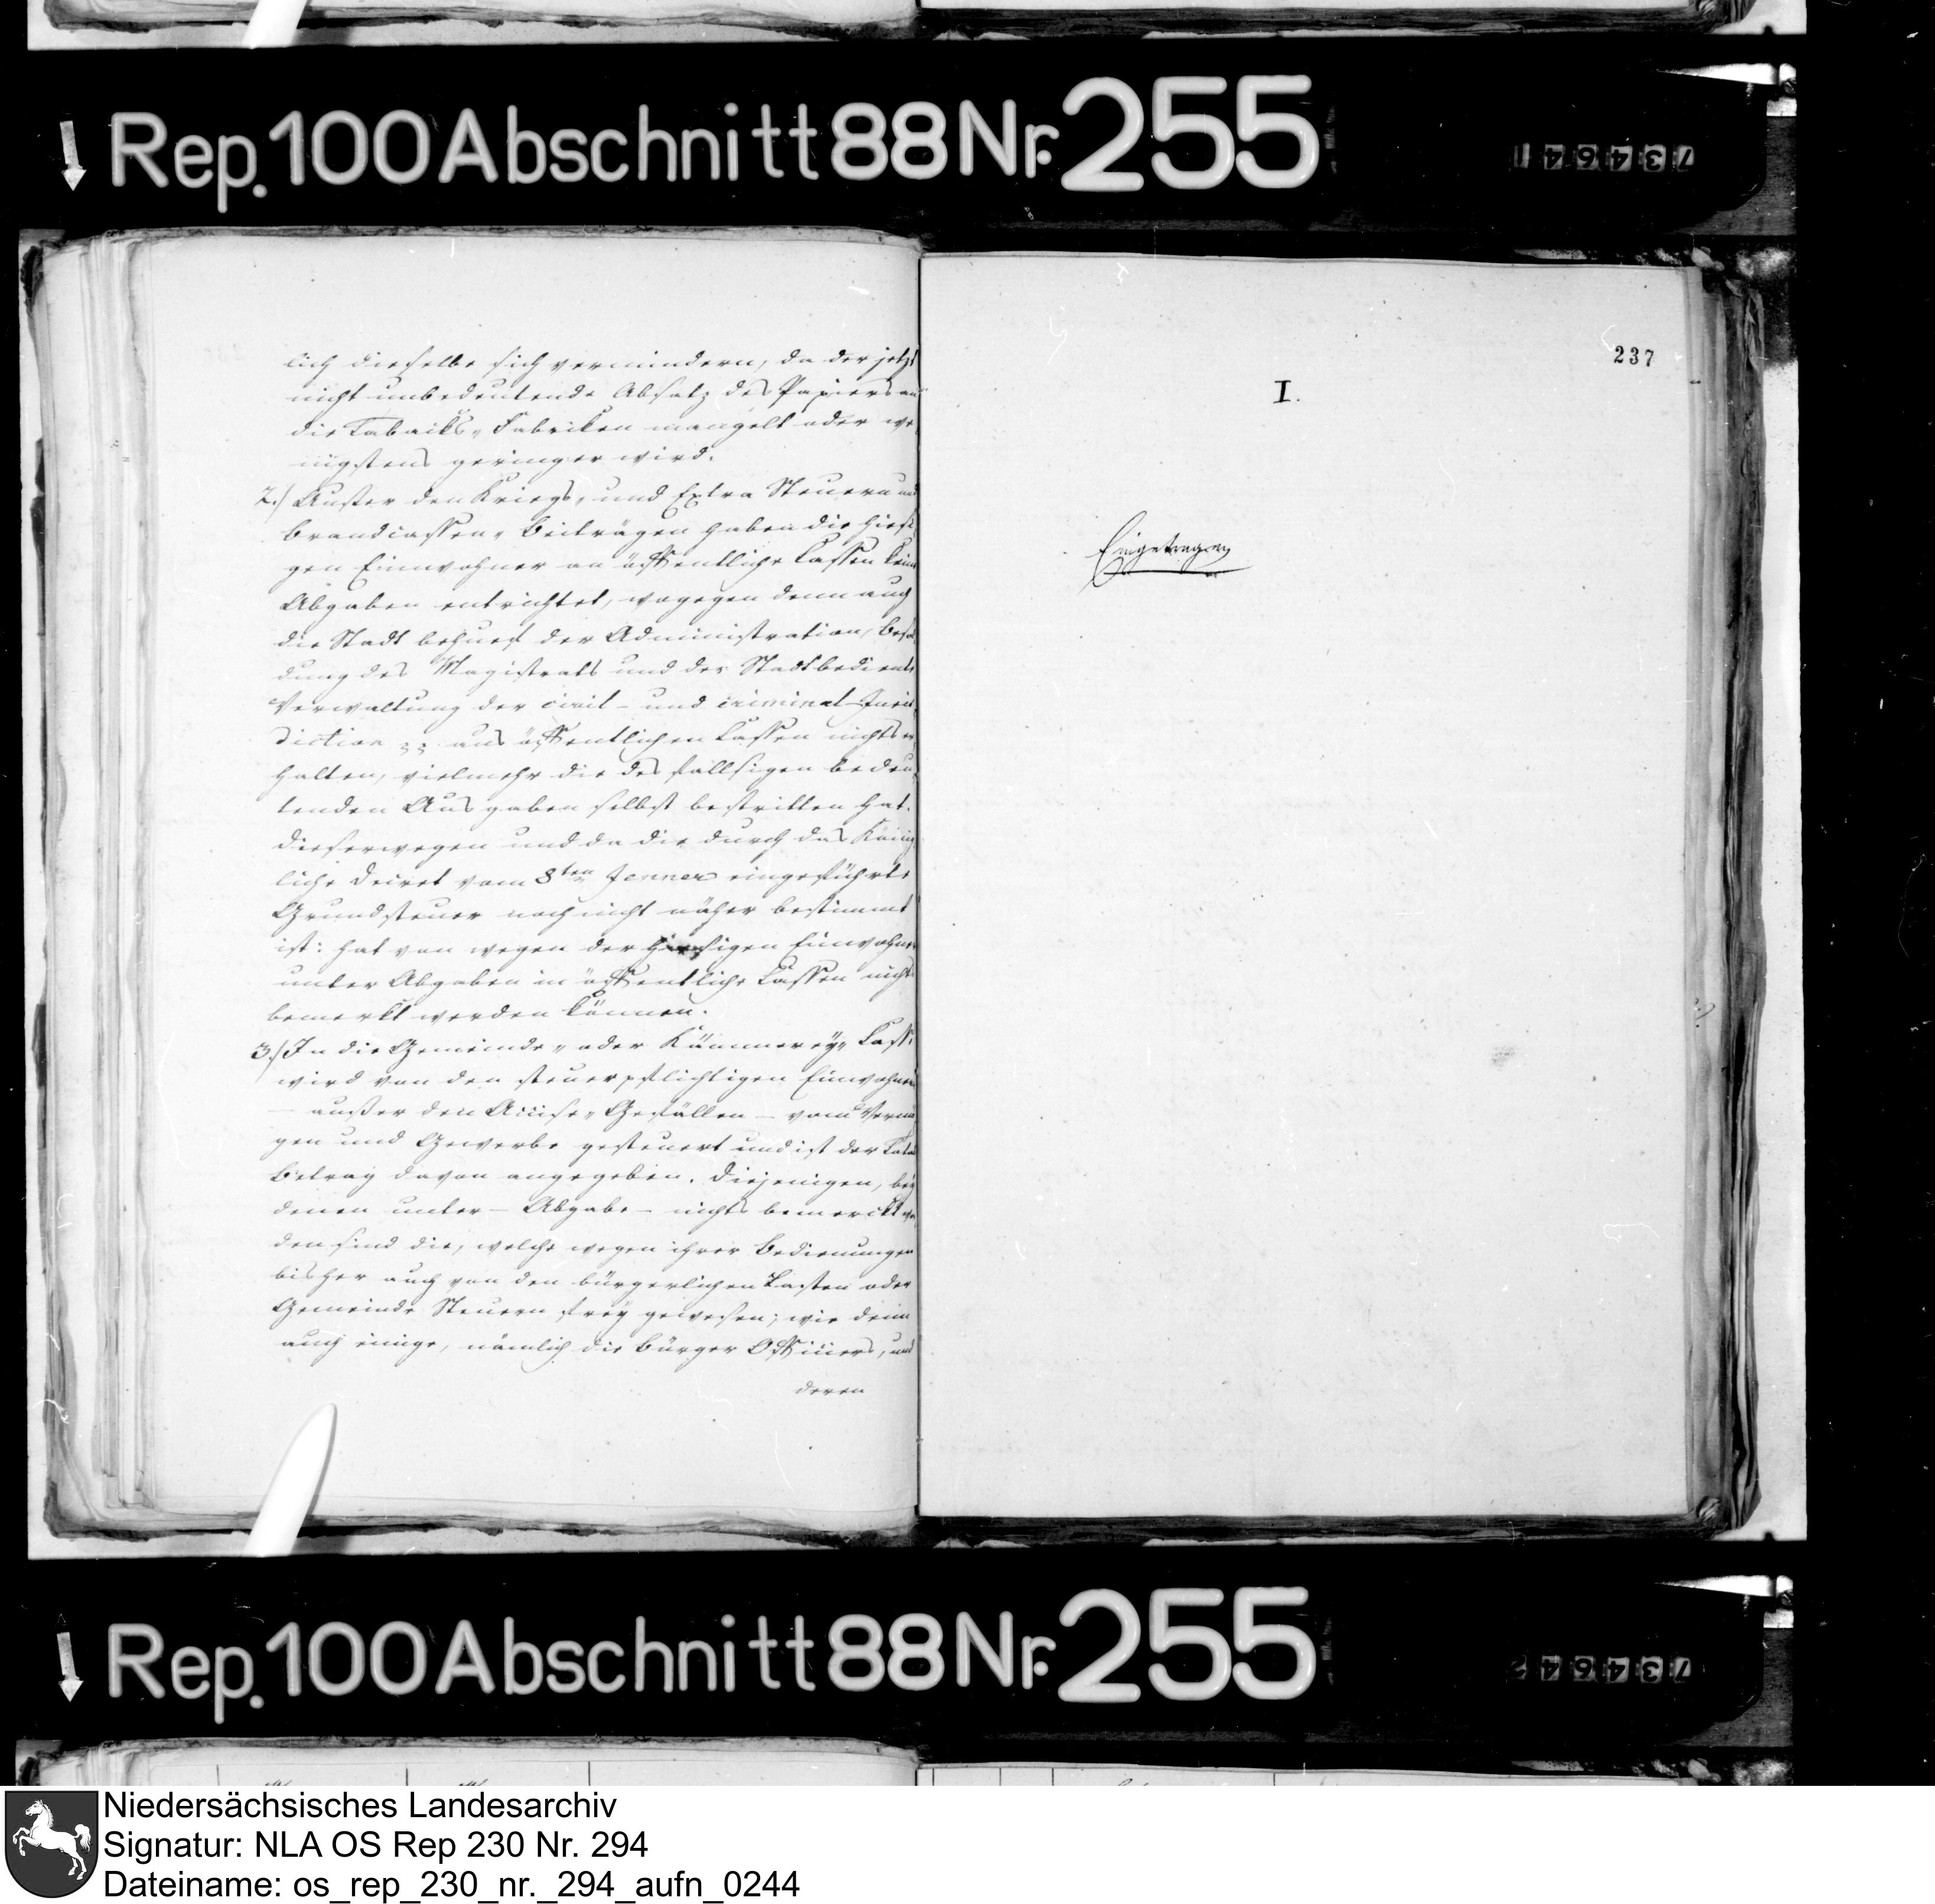 Rep. 100 Abschnitt 88 Nr. 255
734641
lich dieselbe sich vermindern, da der jetzt
nicht unbedeutende Absatz des Papiers an
die Taback's-Fabriken mangelt oder we-
nigstens geringer wird.
2.) Ausser den Kriegs- und Extra Steuern und
Brandcassen-Beiträgen haben die hiesi-
gen Einwohner an öffentliche Cassen keine
Abgaben entrichtet, wogegen denn auch
die Stadt behuef der Administration, Besol-
dung des Magistrats und der Stadtbediente
Verwaltung der civil- und criminal-Juris-
diction aus öffentlichen Cassen nichts er-
halten, vielmehr die desfallsigen bedeu-
tenden Ausgaben selbst bestritten hat.
Dieserwegen und da die durch das König-
liche Decret vom 8ten Jenner eingeführte
Grundsteuer noch nicht näher bestimmt
ist: hat von wegen der hiesigen Einwohner
unter Abgaben in öffentliche Cassen nichts
bemerkt werden können.
3.) In die Gemeinde- oder Kämmerey-Casse
wird von den steuerpflichtigen Einwohnern
— ausser den Accise-Gefällen — vom Vermö-
gen und Gewerbe gesteuert und ist der Total
Betrag davon angegeben. Diejenigen, bey
denen unter — Abgabe — nichts bemerckt wor-
den sind die, welche wegen ihrer Bedienungen
bisher auch von den bürgerlichen Lasten oder
Gemeinde Steuern frey gewesen; wie denn
auch einige, nämlich die Bürger Officiers, und
deren
237
I.
Eingetragen
Rep. 100 Abschnitt 88 Nr. 255
734642
Niedersächsisches Landesarchiv
Signatur: NLA OS Rep 230 Nr. 294
Dateiname: os_rep_230_nr._294_aufn_0244